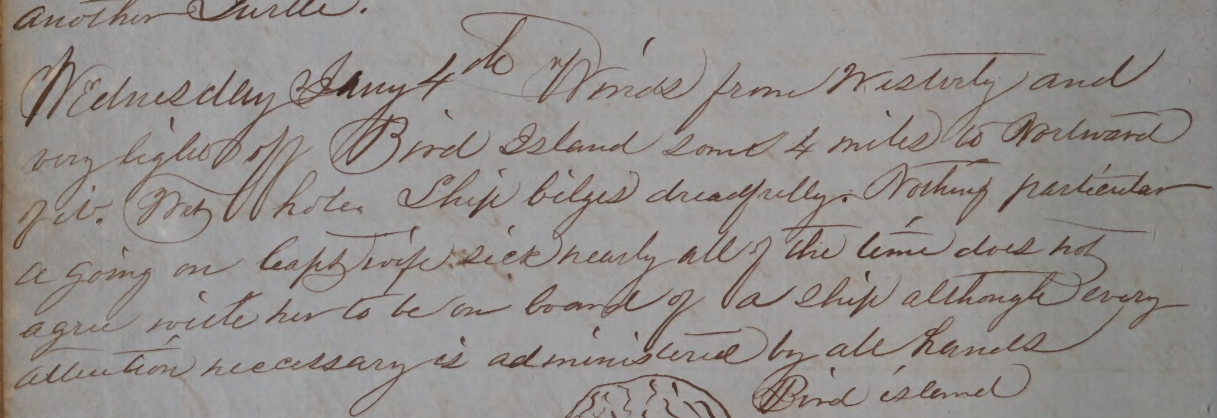 another Turtle.
Wednesday Jany 4th Winds from Westerly and
very light off Bird Island some 4 miles to Nortward
of it. Wet hole. Ship bilges dreadfully. Nothing particular
a going on Capt wife sick nearly all of the time does not
agree with her to be on board of a ship although every
attention neccessary is administered by all hands
Bird island